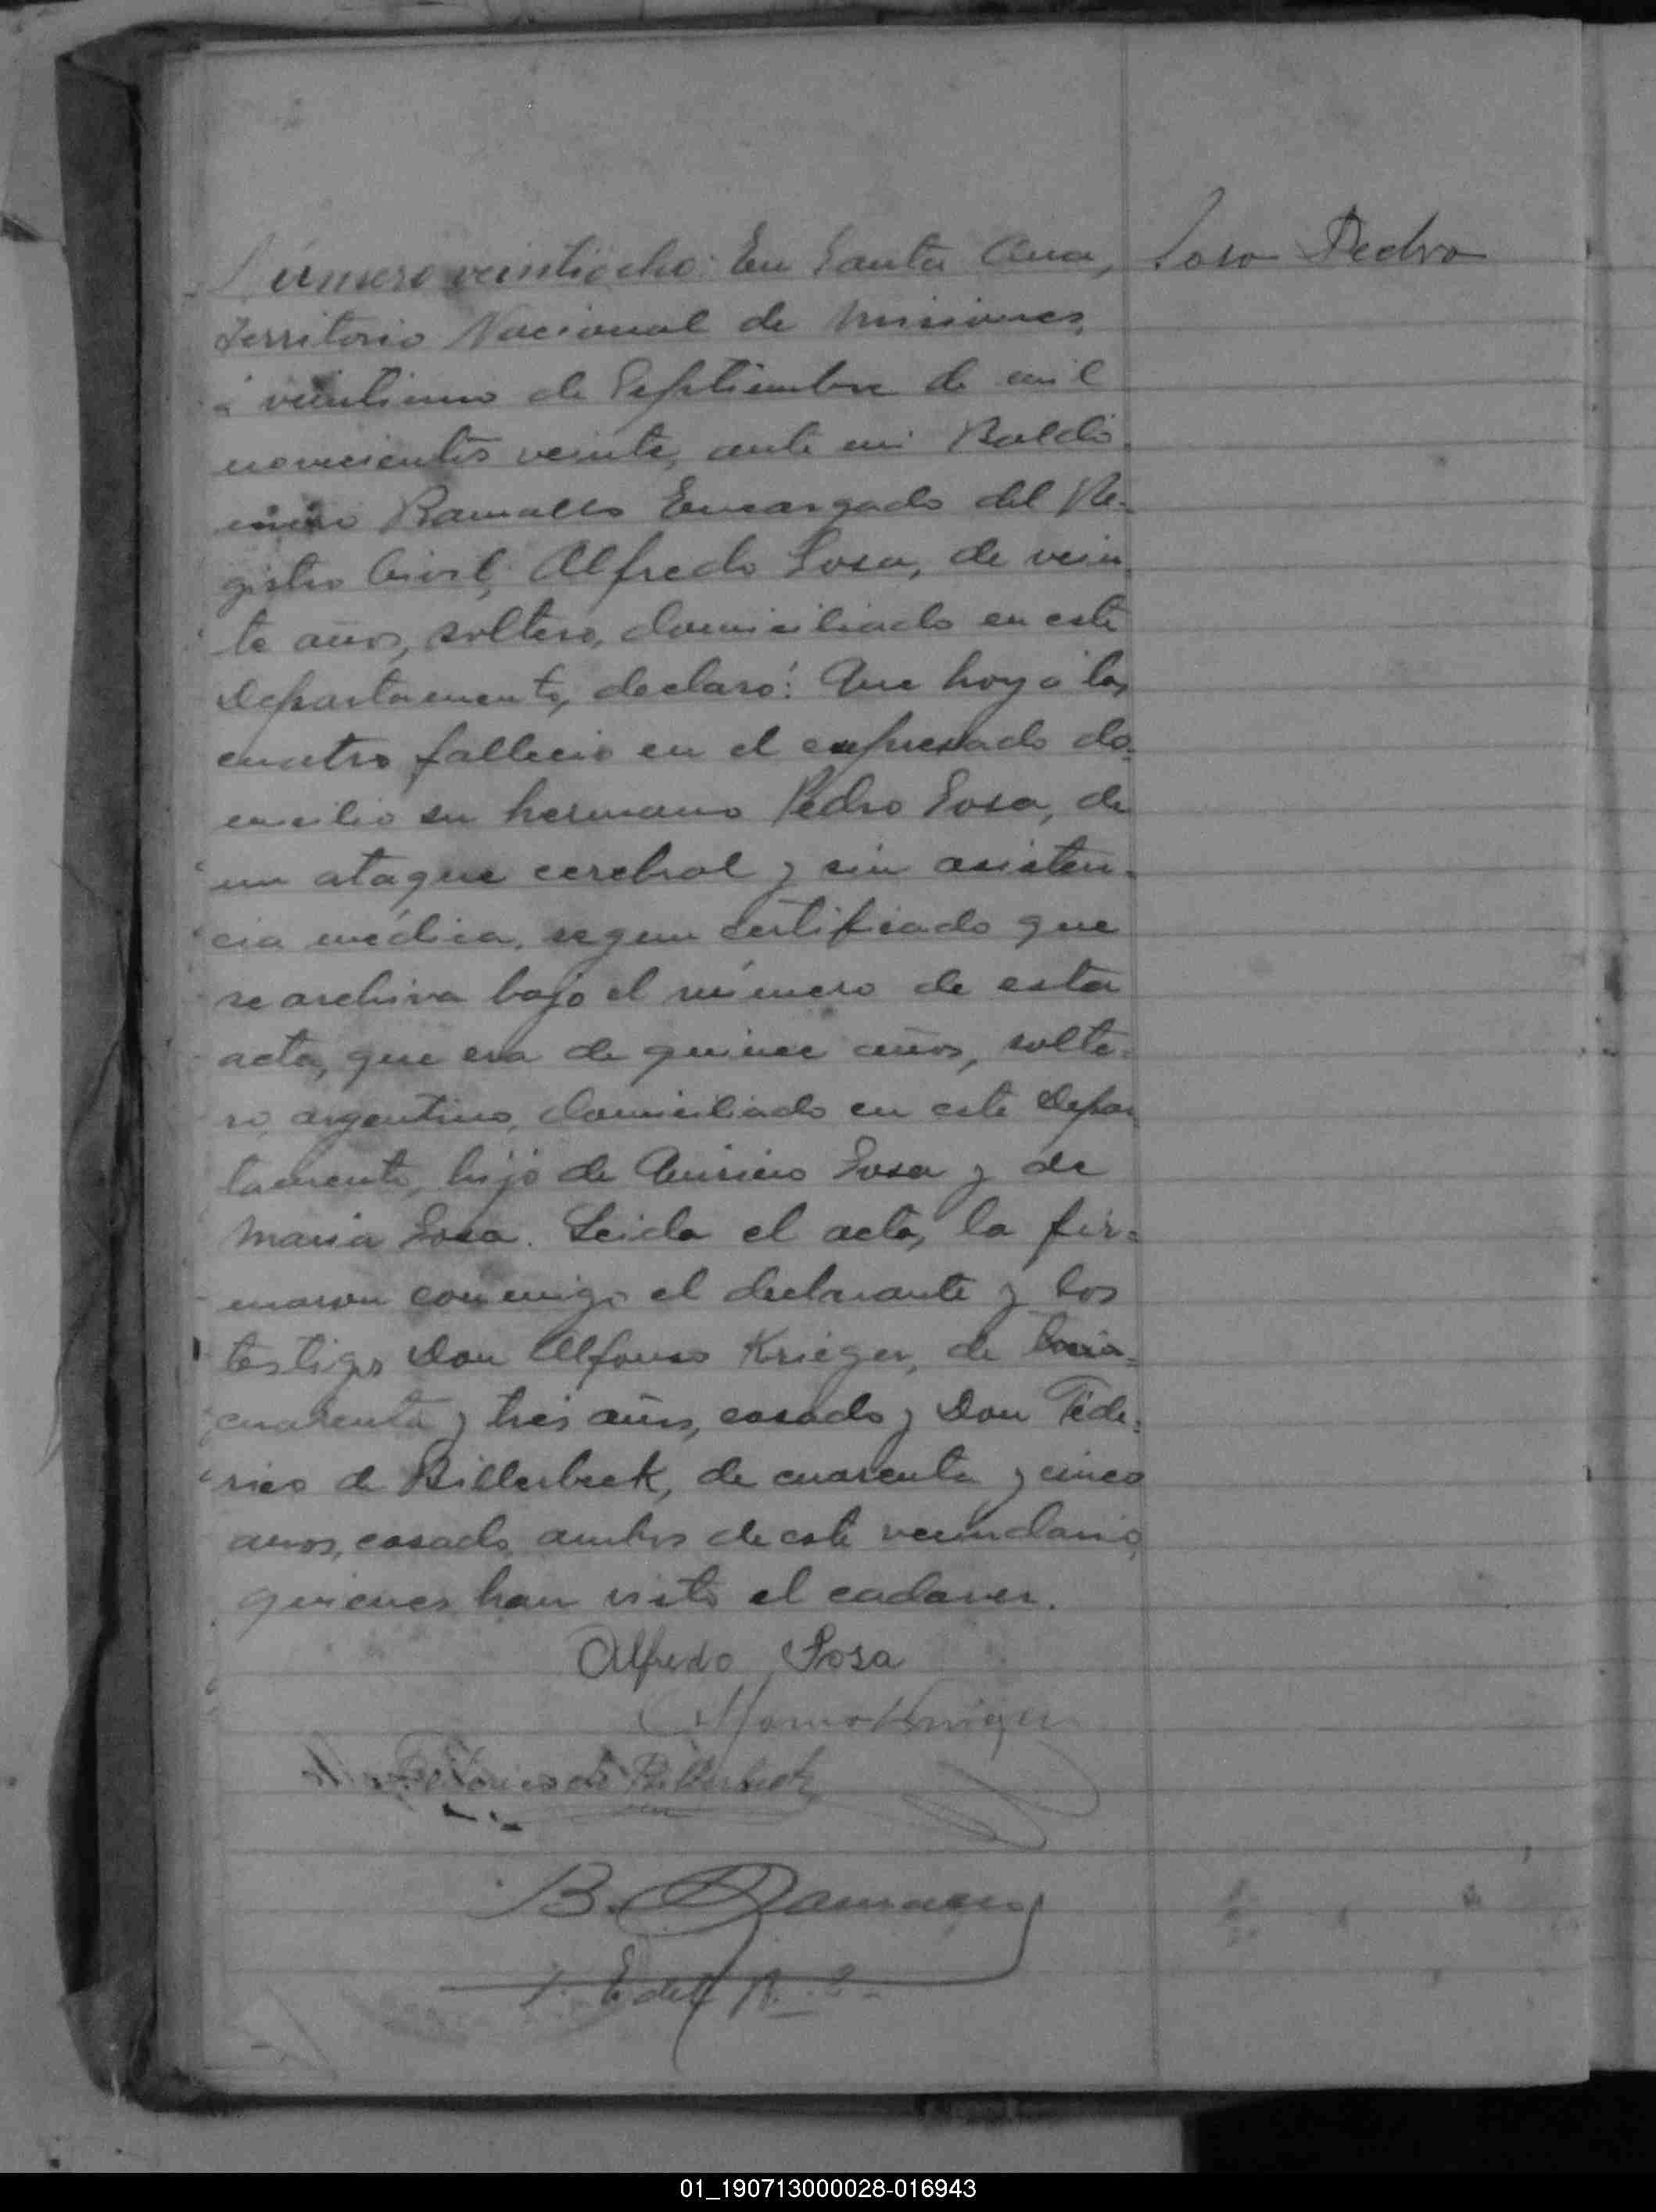 Número veintiocho: En Santa Ana,
Sosa Pedro
Territorio Nacional de Misiones,
á veintiuno de Septiembre de mil
novecientos veinte, ante mi Baldo
mero Ramallo Encargado del Re-
gistro Civil, Alfredo Sosa, de vein
te años, soltero, domiciliado en este
Departamento, declaró: Que hoy a las
cuatro fallecio en el expresado do-
micilio su hermano Pedro Sosa, de
un ataque cerebral y sin asisten-
cia médica, segun certificado que
se archiva bajo el número de esta
acta, que era de quince años, solte-
ro, argentino, domiciliado en este Depar
tamento, hijo de Sosa y de
Maria Sosa. Leida el acta, la fir-
maron conmigo el declarante y los
testigos Don Alfonso Krieger, de
cuarenta y tres años, casado y Don Fede-
rico de Billerbeck, de cuarenta y cinco
años, casado, ambos de este vecindario,
quienes han visto el cadaver.
Alfredo Sosa
Alfonso Krieger
Federico de Billerbeck
B. Ramallo
E. del R. C.
01_190713000028-016943